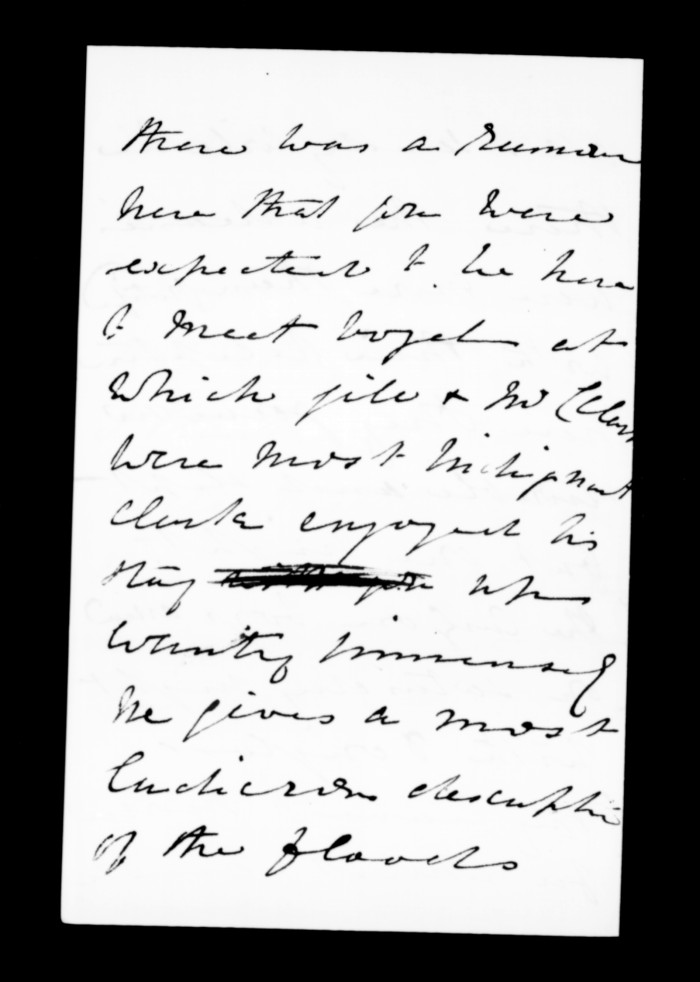 there was a rumour
here that you were
expected to be here
to meet Vogel at
which file & Mr Clark
were most indignant
Clark enjoyed his
stay up
country immensely
he gives a most
ludicrous descriptio
of the floods